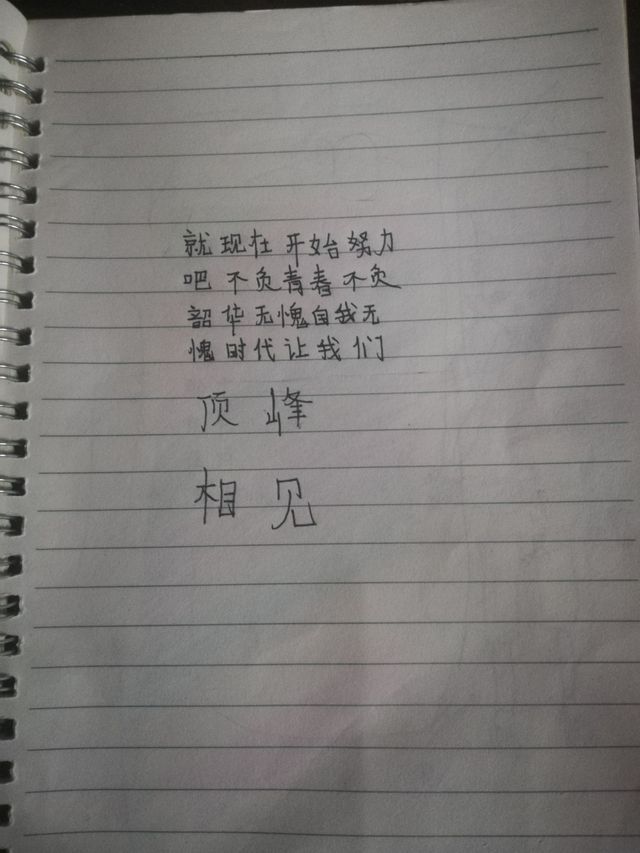 就现在开始努力
吧不负青春不负
韶华无愧自我无
愧时代让我们
顶峰
相见